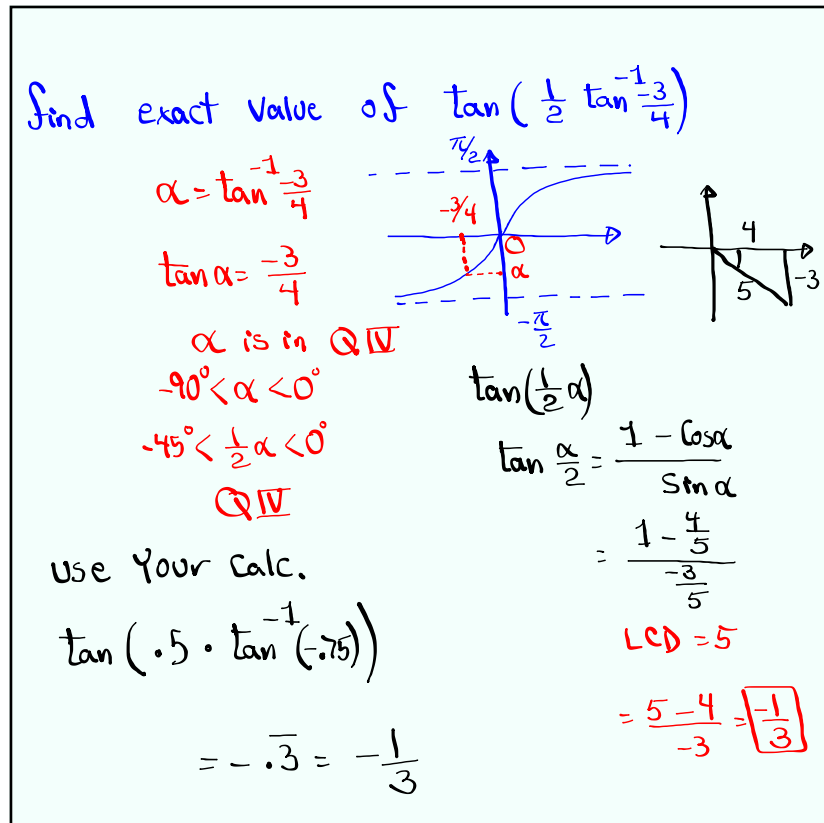 find exact value of tan( 1/2 tan⁻¹ -3/4 )
α = tan⁻¹ -3/4
tan α = -3/4
α is in QIV
-90° < α < 0°
-45° < 1/2 α < 0°
QIV
π/2
-3/4
O
α
-π/2
4
-3
5
tan(1/2 α)
tan α/2 = (1 - Cosα)/(Sinα)
= (1 - 4/5)/(-3/5)
LCD = 5
= (5 - 4)/-3 = -1/3
use Your Calc.
tan( .5 · tan⁻¹(-.75))
= -.3̅ = -1/3